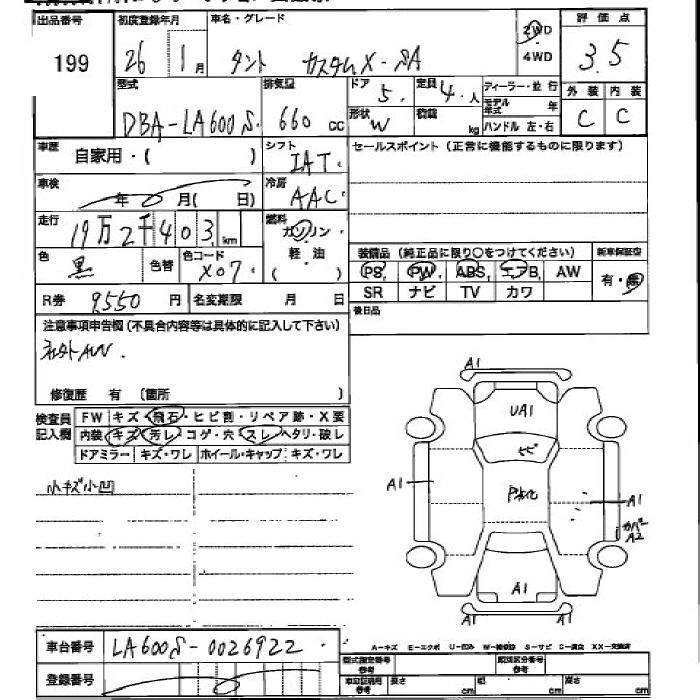 出品番号 初度登録年月 車名・グレード 評価点
199
26 1月 タント カスタムX-SA 2WD 4WD 3.5
型式 排気量 ドア 定員 ディーラー・並行 外装 内装
DBA-LA600S. 660cc 5. 4.人 モデル年式 年 C C
形状 W 積載 kg ハンドル 左・右
車歴 自家用・( ) シフト IAT. セールスポイント (正常に機能するものに限ります)
車検 年 月( 日) 冷房 AAC
走行 19万2千403km 燃料 ガソリン・軽・油 ( )
色 黒 色替 色コード X07. 装備品 (純正品に限り○をつけてください) 新車保証書
PS, PW, ABS, エアB, AW 有・無
R券 9,550円 名変期限 月 日 SR ナビ TV カワ
注意事項申告欄 (不具合内容等は具体的に記入して下さい) 後日品
社外AW.
修復歴 有 (箇所 )
検査員記入欄 FW キズ・飛石・ヒビ割・リペア跡・X要
内装 キズ・汚レ・コゲ・穴・スレ・ヘタリ・破レ
ドアミラー キズ・ワレ ホイール・キャップ キズ・ワレ
小キズ小凹
A1
UA1
ヒビ
A1 A1
カバー
A2
A1
A1 A1
A-キズ E-エクボ U-凹み W-補修跡 S-サビ C-腐食 XX-交換済
車台番号 LA600S-0026922.
登録番号
型式指定番号 類別区分番号
車両証明用 長さ cm 幅 cm 高さ cm